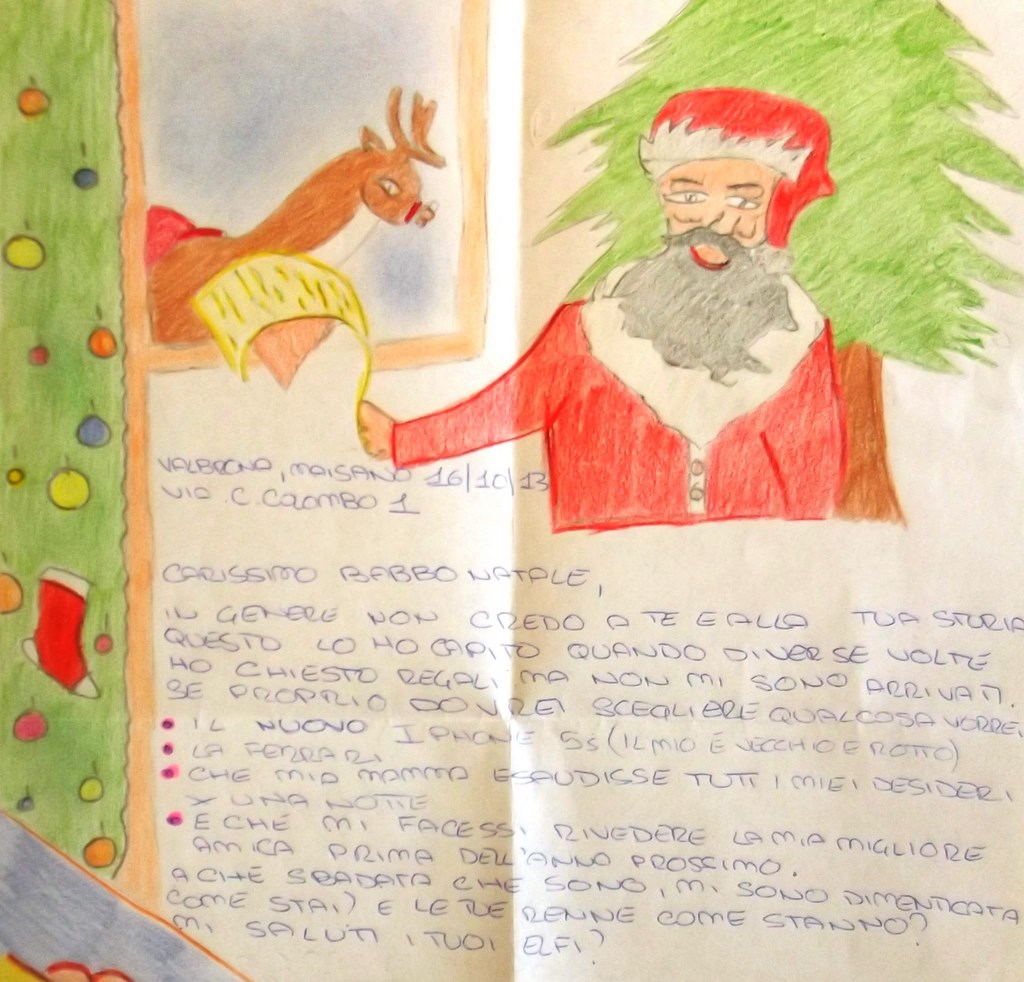 VALBRONA, MAISANO 16/10/13
VIA C. COLOMBO 1
CARISSIMO BABBO NATALE,
IN GENERE NON CREDO A TE E ALLA TUA STORIA
QUESTO LO HO CAPITO QUANDO DIVERSE VOLTE
HO CHIESTO REGALI MA NON MI SONO ARRIVATI.
SE PROPRIO DOVREI SCEGLIERE QUALCOSA VORREI
• IL NUOVO IPHONE 5s (IL MIO È VECCHIO E ROTTO)
• LA FERRARI
• CHE MIA MAMMA ESAUDISSE TUTTI I MIEI DESIDERI
X UNA NOTTE
• E CHE MI FACESSI RIVEDERE LA MIA MIGLIORE
AMICA PRIMA DELL'ANNO PROSSIMO.
ACHE SBADATA CHE SONO, MI SONO DIMENTICATA
COME STAI? E LE TUE RENNE COME STANNO?
MI SALUTI I TUOI ELFI?